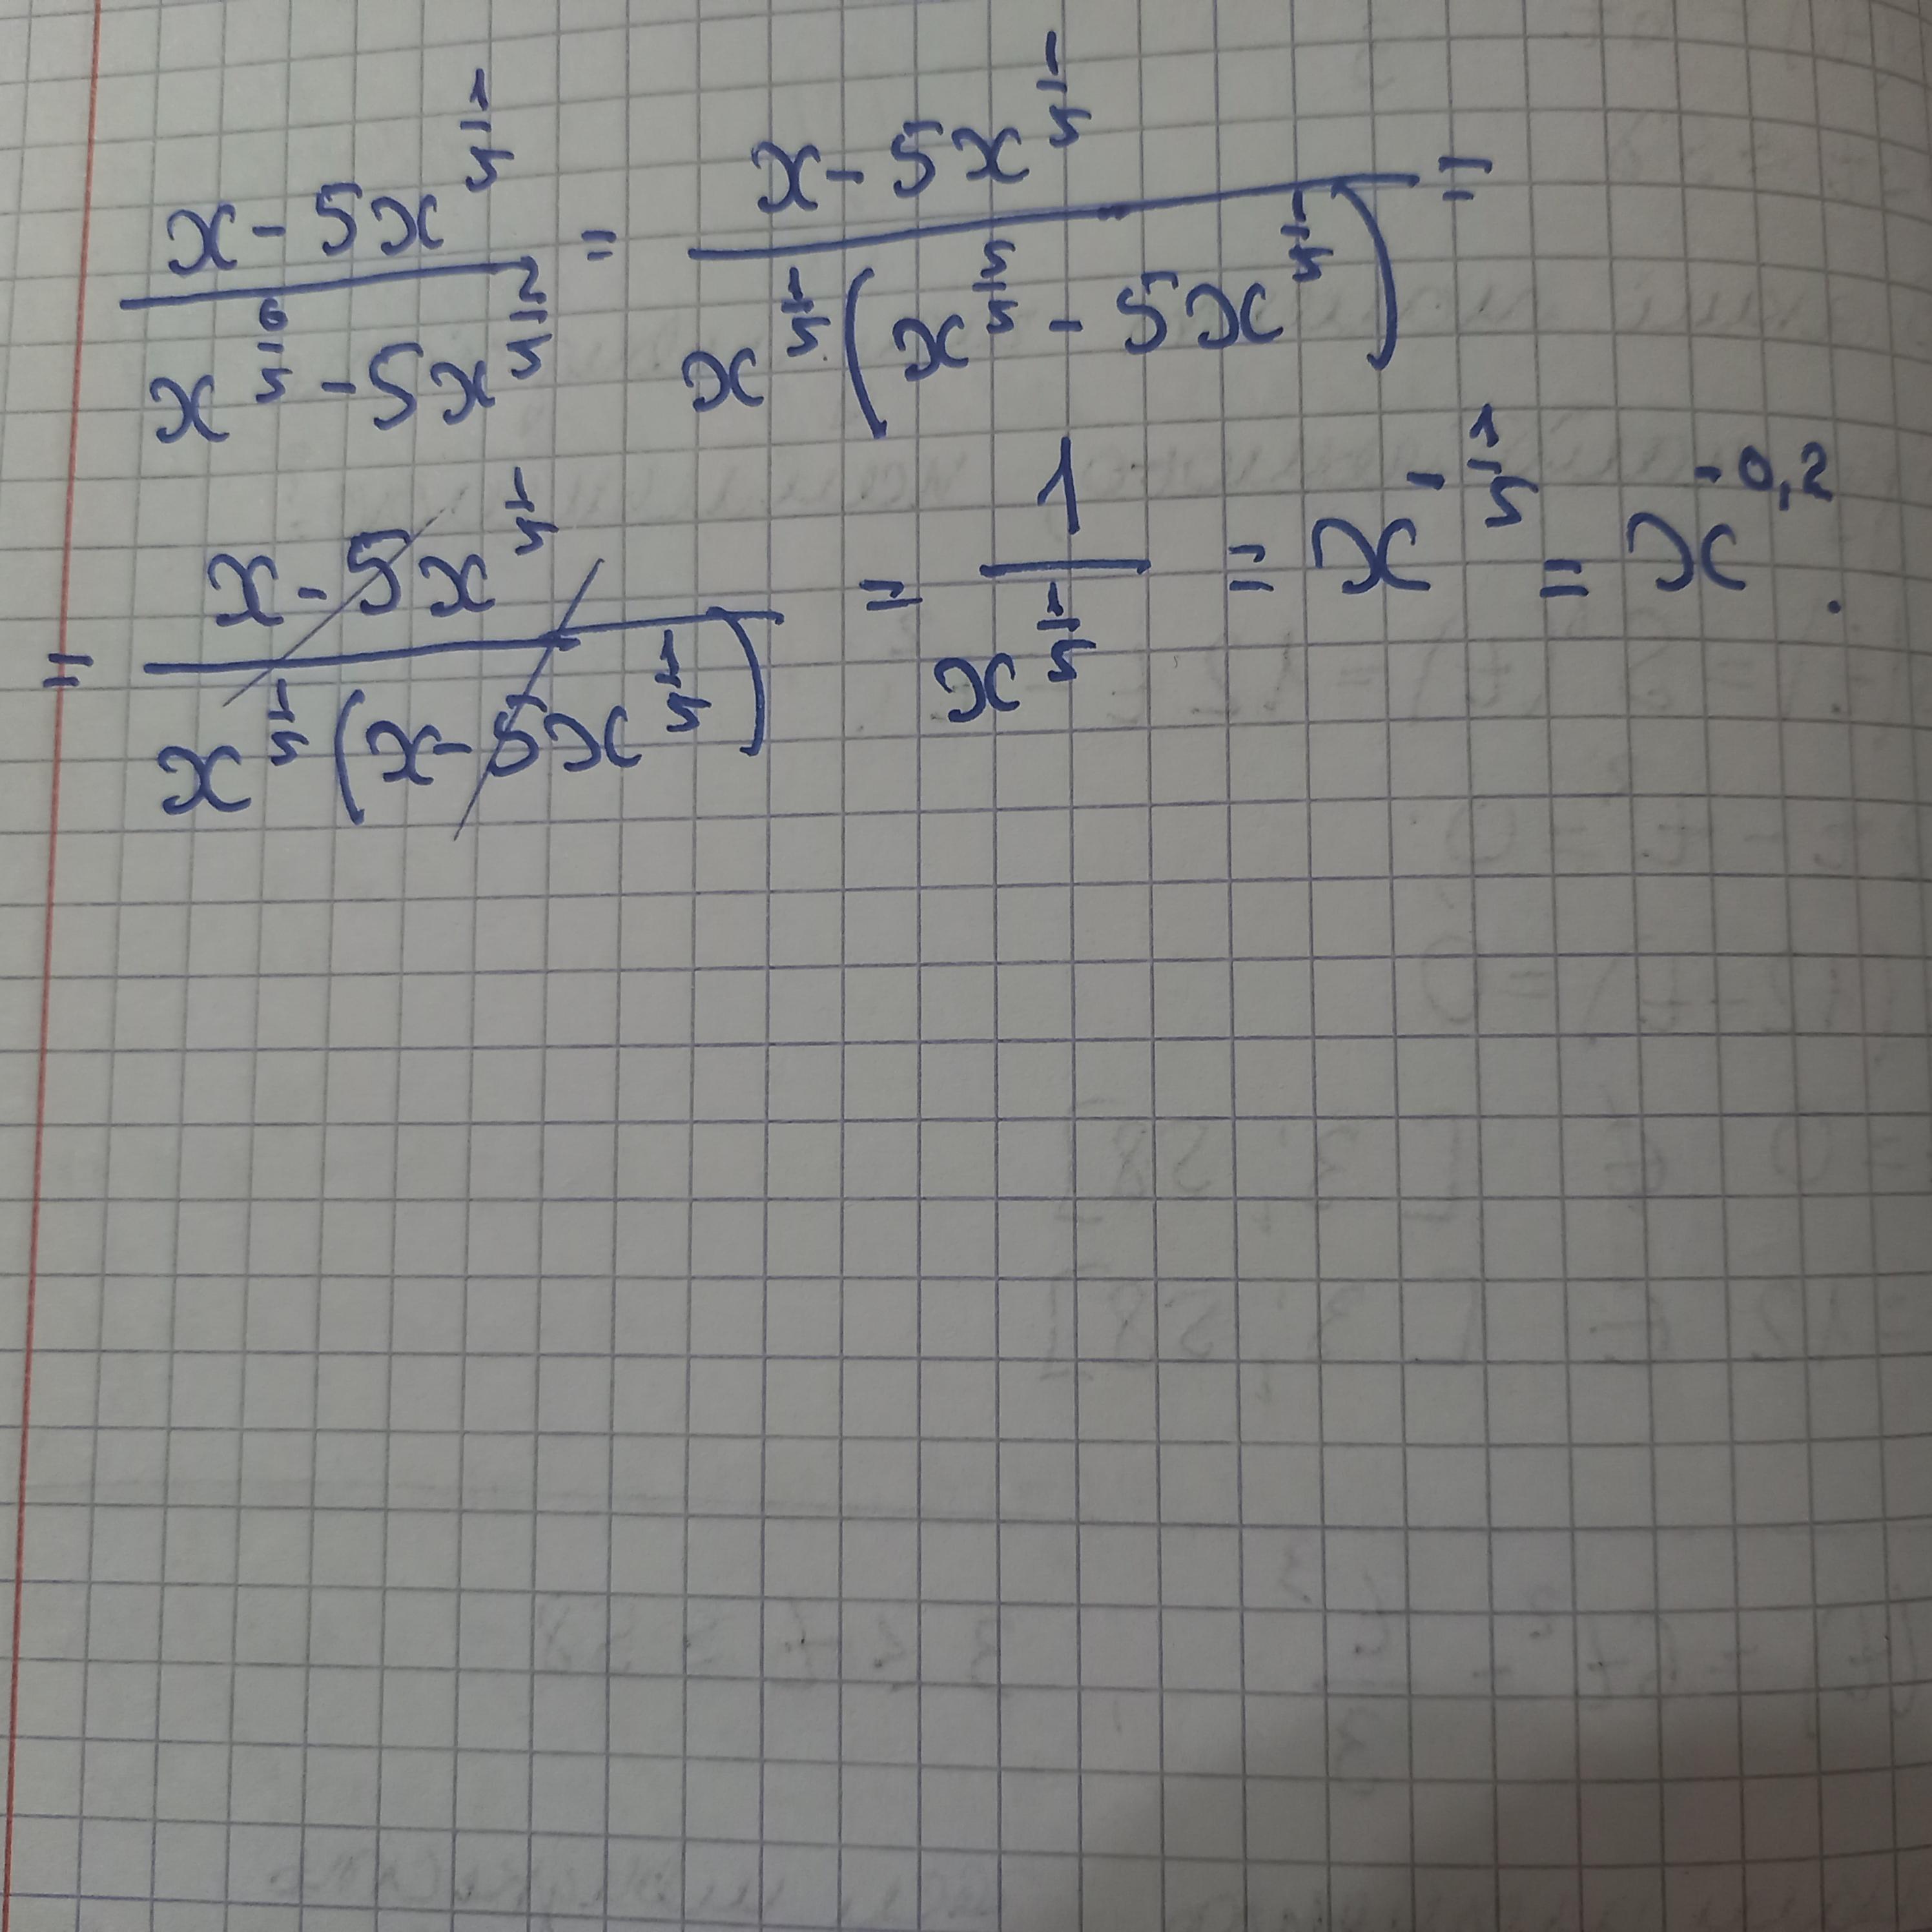 \frac{x - 5x^{\frac{1}{5}}}{x^{\frac{6}{5}} - 5x^{\frac{2}{5}}} = \frac{x - 5x^{\frac{1}{5}}}{x^{\frac{1}{5}}(x^{\frac{5}{5}} - 5x^{\frac{1}{5}})} =
= \frac{x - 5x^{\frac{1}{5}}}{x^{\frac{1}{5}}(x - 5x^{\frac{1}{5}})} = \frac{1}{x^{\frac{1}{5}}} = x^{-\frac{1}{5}} = x^{-0,2}.